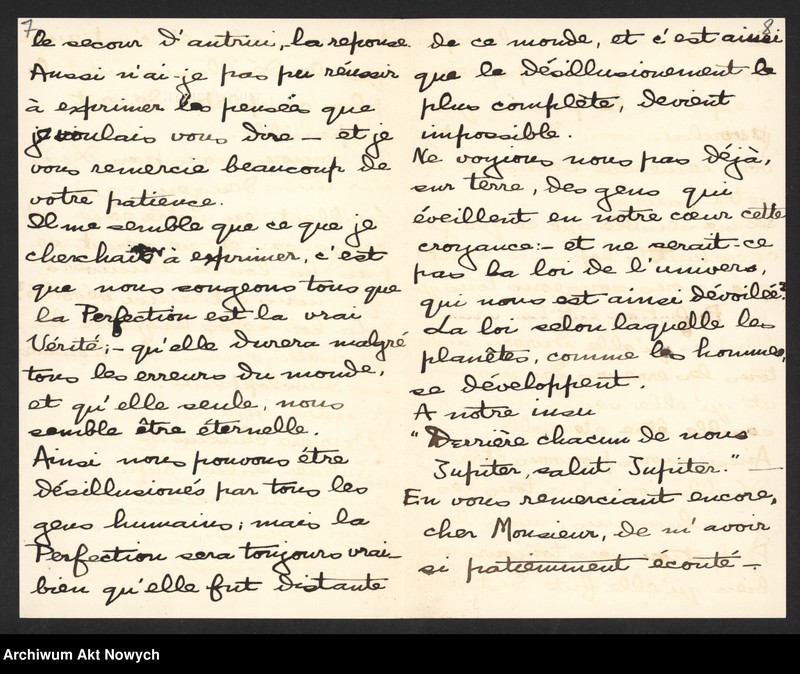 7
le secour d'autrui, la reponse.
Aussi n'ai-je pas pu réussir
à exprimer les pensées que
je voulais vous dire — et je
vous remercie beaucoup de
votre patience.
Il me semble que ce que je
cherchais à exprimer, c'est
que nous songeons tous que
la Perfection est la vrai
Vérité; - qu'elle durera malgré
tous les erreurs du monde,
et qu'elle seule, nous
semble être éternelle.
Ainsi nous pouvons être
désillusionés par tous les
gens humains; mais la
Perfection sera toujours vrai -
bien qu'elle fut distante
8
de ce monde, et c'est ainsi
que le désillusionement le
plus complète, devient
impossible.
Ne voyions nous pas déjà,
sur terre, des gens qui
éveillent en notre cœur cette
croyance: - et ne serait-ce
pas la loi de l'univers,
qui nous est ainsi dévoilée?
La loi selon laquelle les
planêtes, comme les hommes,
se développent.
A notre insu
"Derrière chacun de nous
Jupiter, salut Jupiter." —
En vous remerciant encore,
cher Monsieur, de m'avoir
si patiemment écouté —
Archiwum Akt Nowych